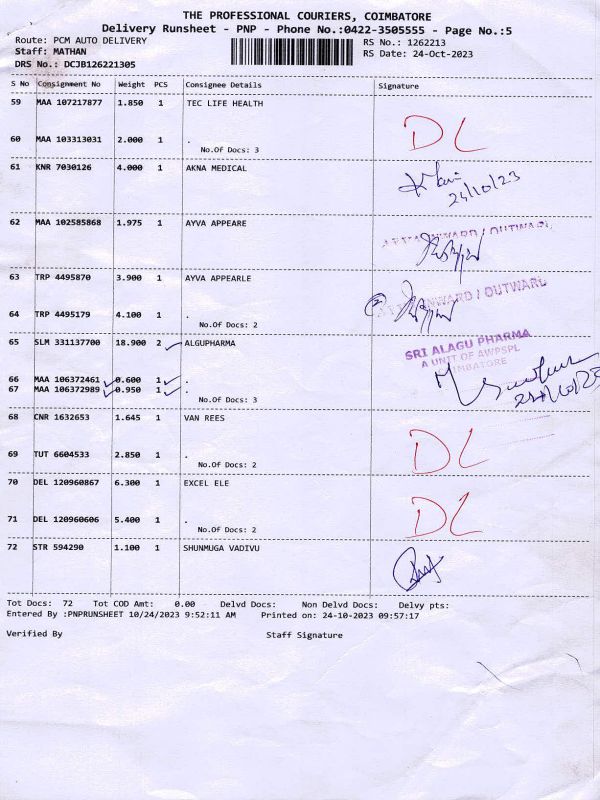 THE PROFESSIONAL COURIERS, COIMBATORE
Delivery Runsheet - PNP - Phone No.:0422-3505555 - Page No.:5
Route: PCM AUTO DELIVERY RS No.: 1262213
Staff: MATHAN RS Date: 24-Oct-2023
DRS No.: DCJB126221305
S No Consignment No Weight PCS Consignee Details Signature
59 MAA 107217877 1.850 1 TEC LIFE HEALTH
DL
60 MAA 103313031 2.000 1 .
No.Of Docs: 3
61 KNR 7030126 4.000 1 AKNA MEDICAL
24/10/23
62 MAA 102585868 1.975 1 AYVA APPEARE
INWARD / OUTWARD
63 TRP 4495870 3.900 1 AYVA APPEARLE
INWARD / OUTWARD
64 TRP 4495179 4.100 1 .
No.Of Docs: 2
65 SLM 331137700 18.900 2 ALGUPHARMA
SRI ALAGU PHARMA
A UNIT OF AWPSPL
COIMBATORE
66 MAA 106372461 0.600 1 .
67 MAA 106372989 0.950 1 .
No.Of Docs: 3
68 CNR 1632653 1.645 1 VAN REES
DL
69 TUT 6604533 2.850 1 .
No.Of Docs: 2
70 DEL 120960867 6.300 1 EXCEL ELE
DL
71 DEL 120960606 5.400 1 .
No.Of Docs: 2
72 STR 594290 1.100 1 SHUNMUGA VADIVU
Tot Docs: 72 Tot COD Amt: 0.00 Delvd Docs: Non Delvd Docs: Delvy pts:
Entered By :PNPRUNSHEET 10/24/2023 9:52:11 AM Printed on: 24-10-2023 09:57:17
Verified By Staff Signature